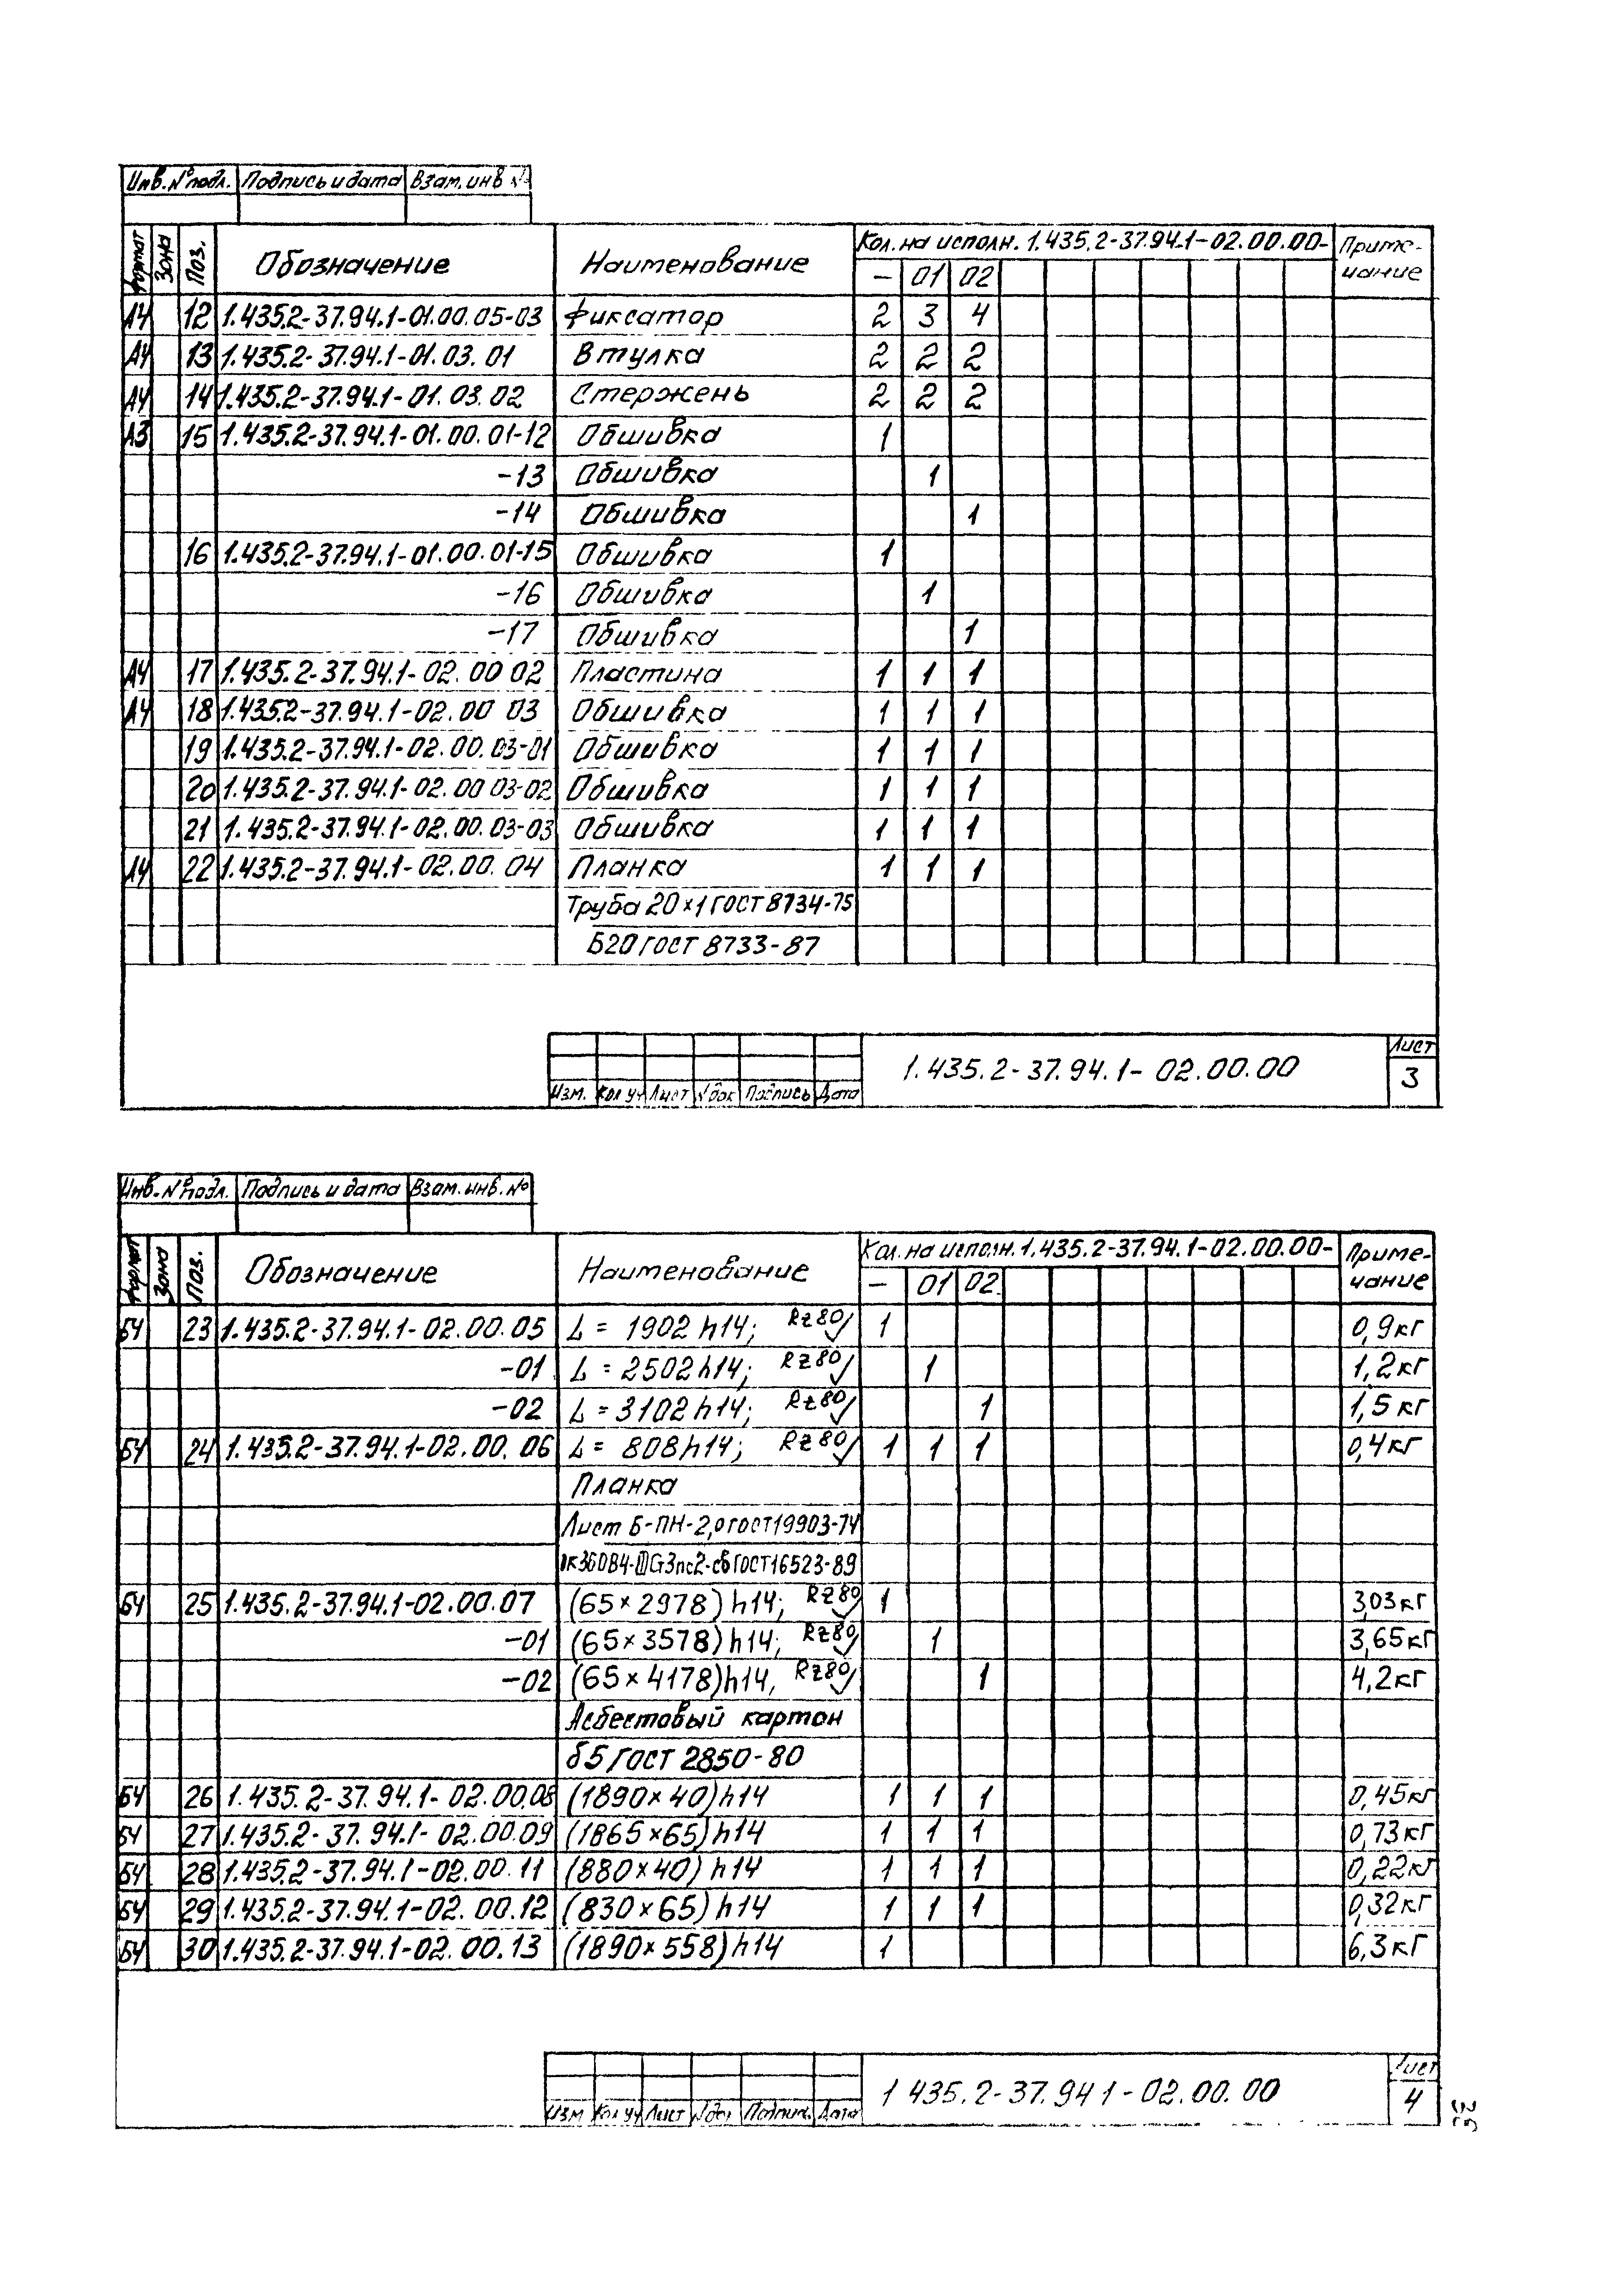 Инв.№подл. Подпись и дата Взам.инв №
Формат Зона Поз. Обозначение Наименование Кол.на исполн. 1.435.2-37.94.1-02.00.00- Приме-чание
— 01 02
А4 12 1.435.2-37.94.1-01.00.05-03 Фиксатор 2 3 4
А4 13 1.435.2-37.94.1-01.03.01 Втулка 2 2 2
А4 14 1.435.2-37.94.1-01.03.02 Стержень 2 2 2
А3 15 1.435.2-37.94.1-01.00.01-12 Обшивка 1
-13 Обшивка 1
-14 Обшивка 1
16 1.435.2-37.94.1-01.00.01-15 Обшивка 1
-16 Обшивка 1
-17 Обшивка 1
А4 17 1.435.2-37.94.1-02.00 02 Пластина 1 1 1
А4 18 1.435.2-37.94.1-02.00 03 Обшивка 1 1 1
19 1.435.2-37.94.1-02.00.03-01 Обшивка 1 1 1
20 1.435.2-37.94.1-02.00 03-02 Обшивка 1 1 1
21 1.435.2-37.94.1-02.00.03-03 Обшивка 1 1 1
А4 22 1.435.2-37.94.1-02.00.04 Планка 1 1 1
Труба 20×1 ГОСТ 8734-75
Б20 ГОСТ 8733-87
Изм. Кол уч Лист №док Подпись Дата 1.435.2-37.94.1-02.00.00 Лист 3
Инв.№подл. Подпись и дата Взам.инв.№
Формат Зона Поз. Обозначение Наименование Кол.на исполн.1.435.2-37.94.1-02.00.00- Приме-чание
— 01 02
БЧ 23 1.435.2-37.94.1-02.00.05 L = 1902 h14; Rz80 1 0,9кг
-01 L = 2502 h14; Rz80 1 1,2кг
-02 L = 3102 h14; Rz80 1 1,5 кг
БЧ 24 1.435.2-37.94.1-02.00.06 L = 808 h14; Rz80 1 1 1 0,4кг
Планка
Лист Б-ПН-2,0 ГОСТ 19903-74
ГОСТ 16523-89
БЧ 25 1.435.2-37.94.1-02.00.07 (65×2978) h14; Rz80 1 3,03кг
-01 (65×3578) h14; Rz80 1 3,65кг
-02 (65×4178) h14, Rz80 1 4,2кг
Асбестовый картон
δ5 ГОСТ 2850-80
БЧ 26 1.435.2-37.94.1-02.00.08 (1890×40) h14 1 1 1 0,45кг
БЧ 27 1.435.2-37.94.1-02.00.09 (1865×65) h14 1 1 1 0,73кг
БЧ 28 1.435.2-37.94.1-02.00.11 (880×40) h14 1 1 1 0,22кг
БЧ 29 1.435.2-37.94.1-02.00.12 (830×65) h14 1 1 1 0,32кг
БЧ 30 1.435.2-37.94.1-02.00.13 (1890×558) h14 1 6,3кг
Изм Кол уч Лист №док Подпись Дата 1 435.2-37.94 1-02.00.00 Лист 4